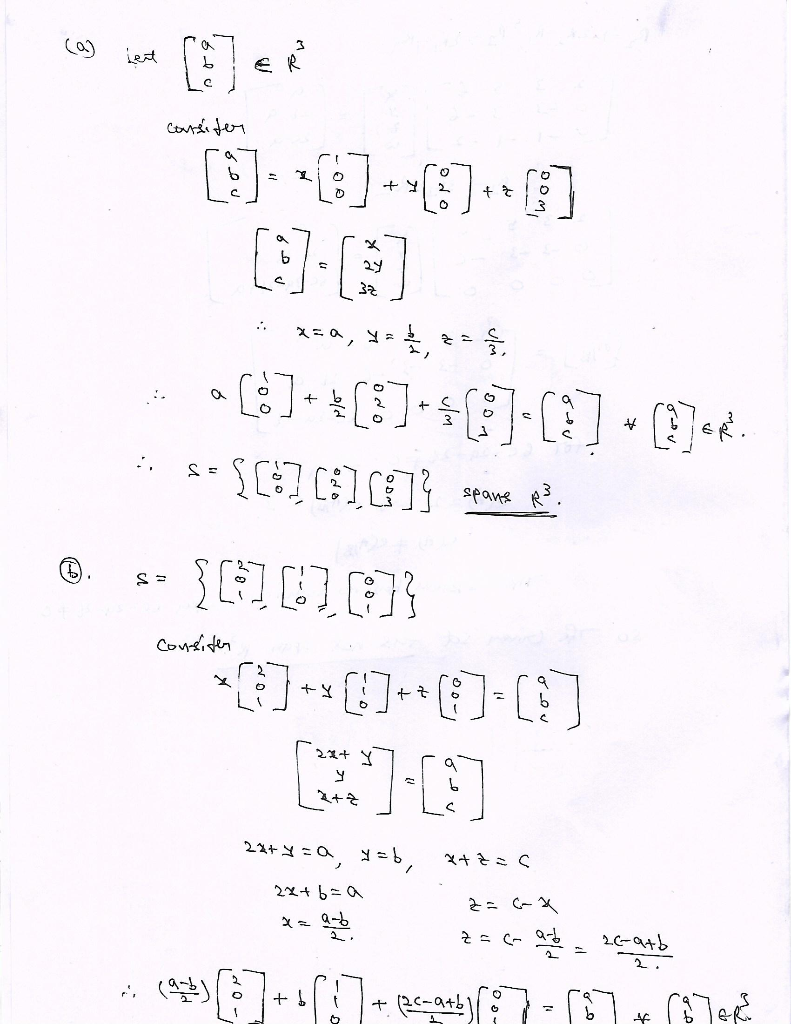 (a) let [a b c] ∈ R³
consider
[a b c] = x [1 0 0] + y [0 2 0] + z [0 0 3]
[a b c] = [x 2y 3z]
∴ x = a, y = b/2, z = c/3.
∴ a [1 0 0] + b/2 [0 2 0] + c/3 [0 0 3] = [a b c] ∀ [a b c] ∈ R³.
∴ S = {[1 0 0], [0 2 0], [0 0 3]} spans R³.
(b). S = {[2 0 1], [1 1 0], [0 0 1]}
consider
x [2 0 1] + y [1 1 0] + z [0 0 1] = [a b c]
[2x+y y x+z] = [a b c]
2x+y = a, y = b, x+z = c
2x+b = a z = c-x
x = a-b/2. z = c- a-b/2 = 2c-a+b/2.
∴ (a-b/2) [2 0 1] + b [1 1 0] + (2c-a+b/2) [0 0 1] = [a b ∀ [a b ∈ R³